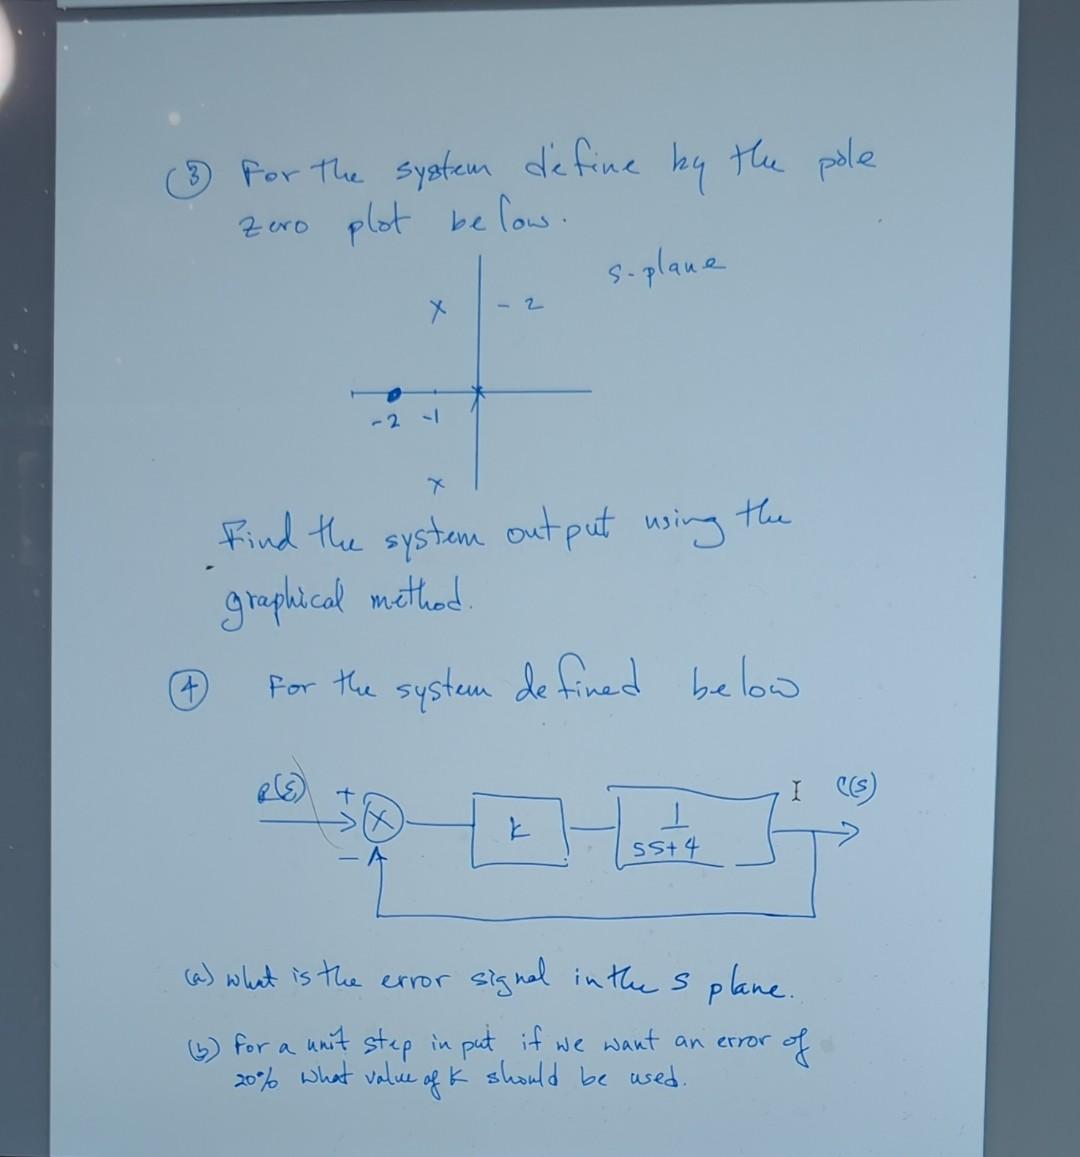 (3) For the system define by the pole
zero plot below.
s-plane
x - 2
x
-2 -1
x
Find the system output using the
graphical method.
(4) For the system defined below
R(s) + I C(s)
X k 1
- 5s+4
(a) what is the error signal in the s plane.
(b) for a unit step in put if we want an error of
20% what value of k should be used.